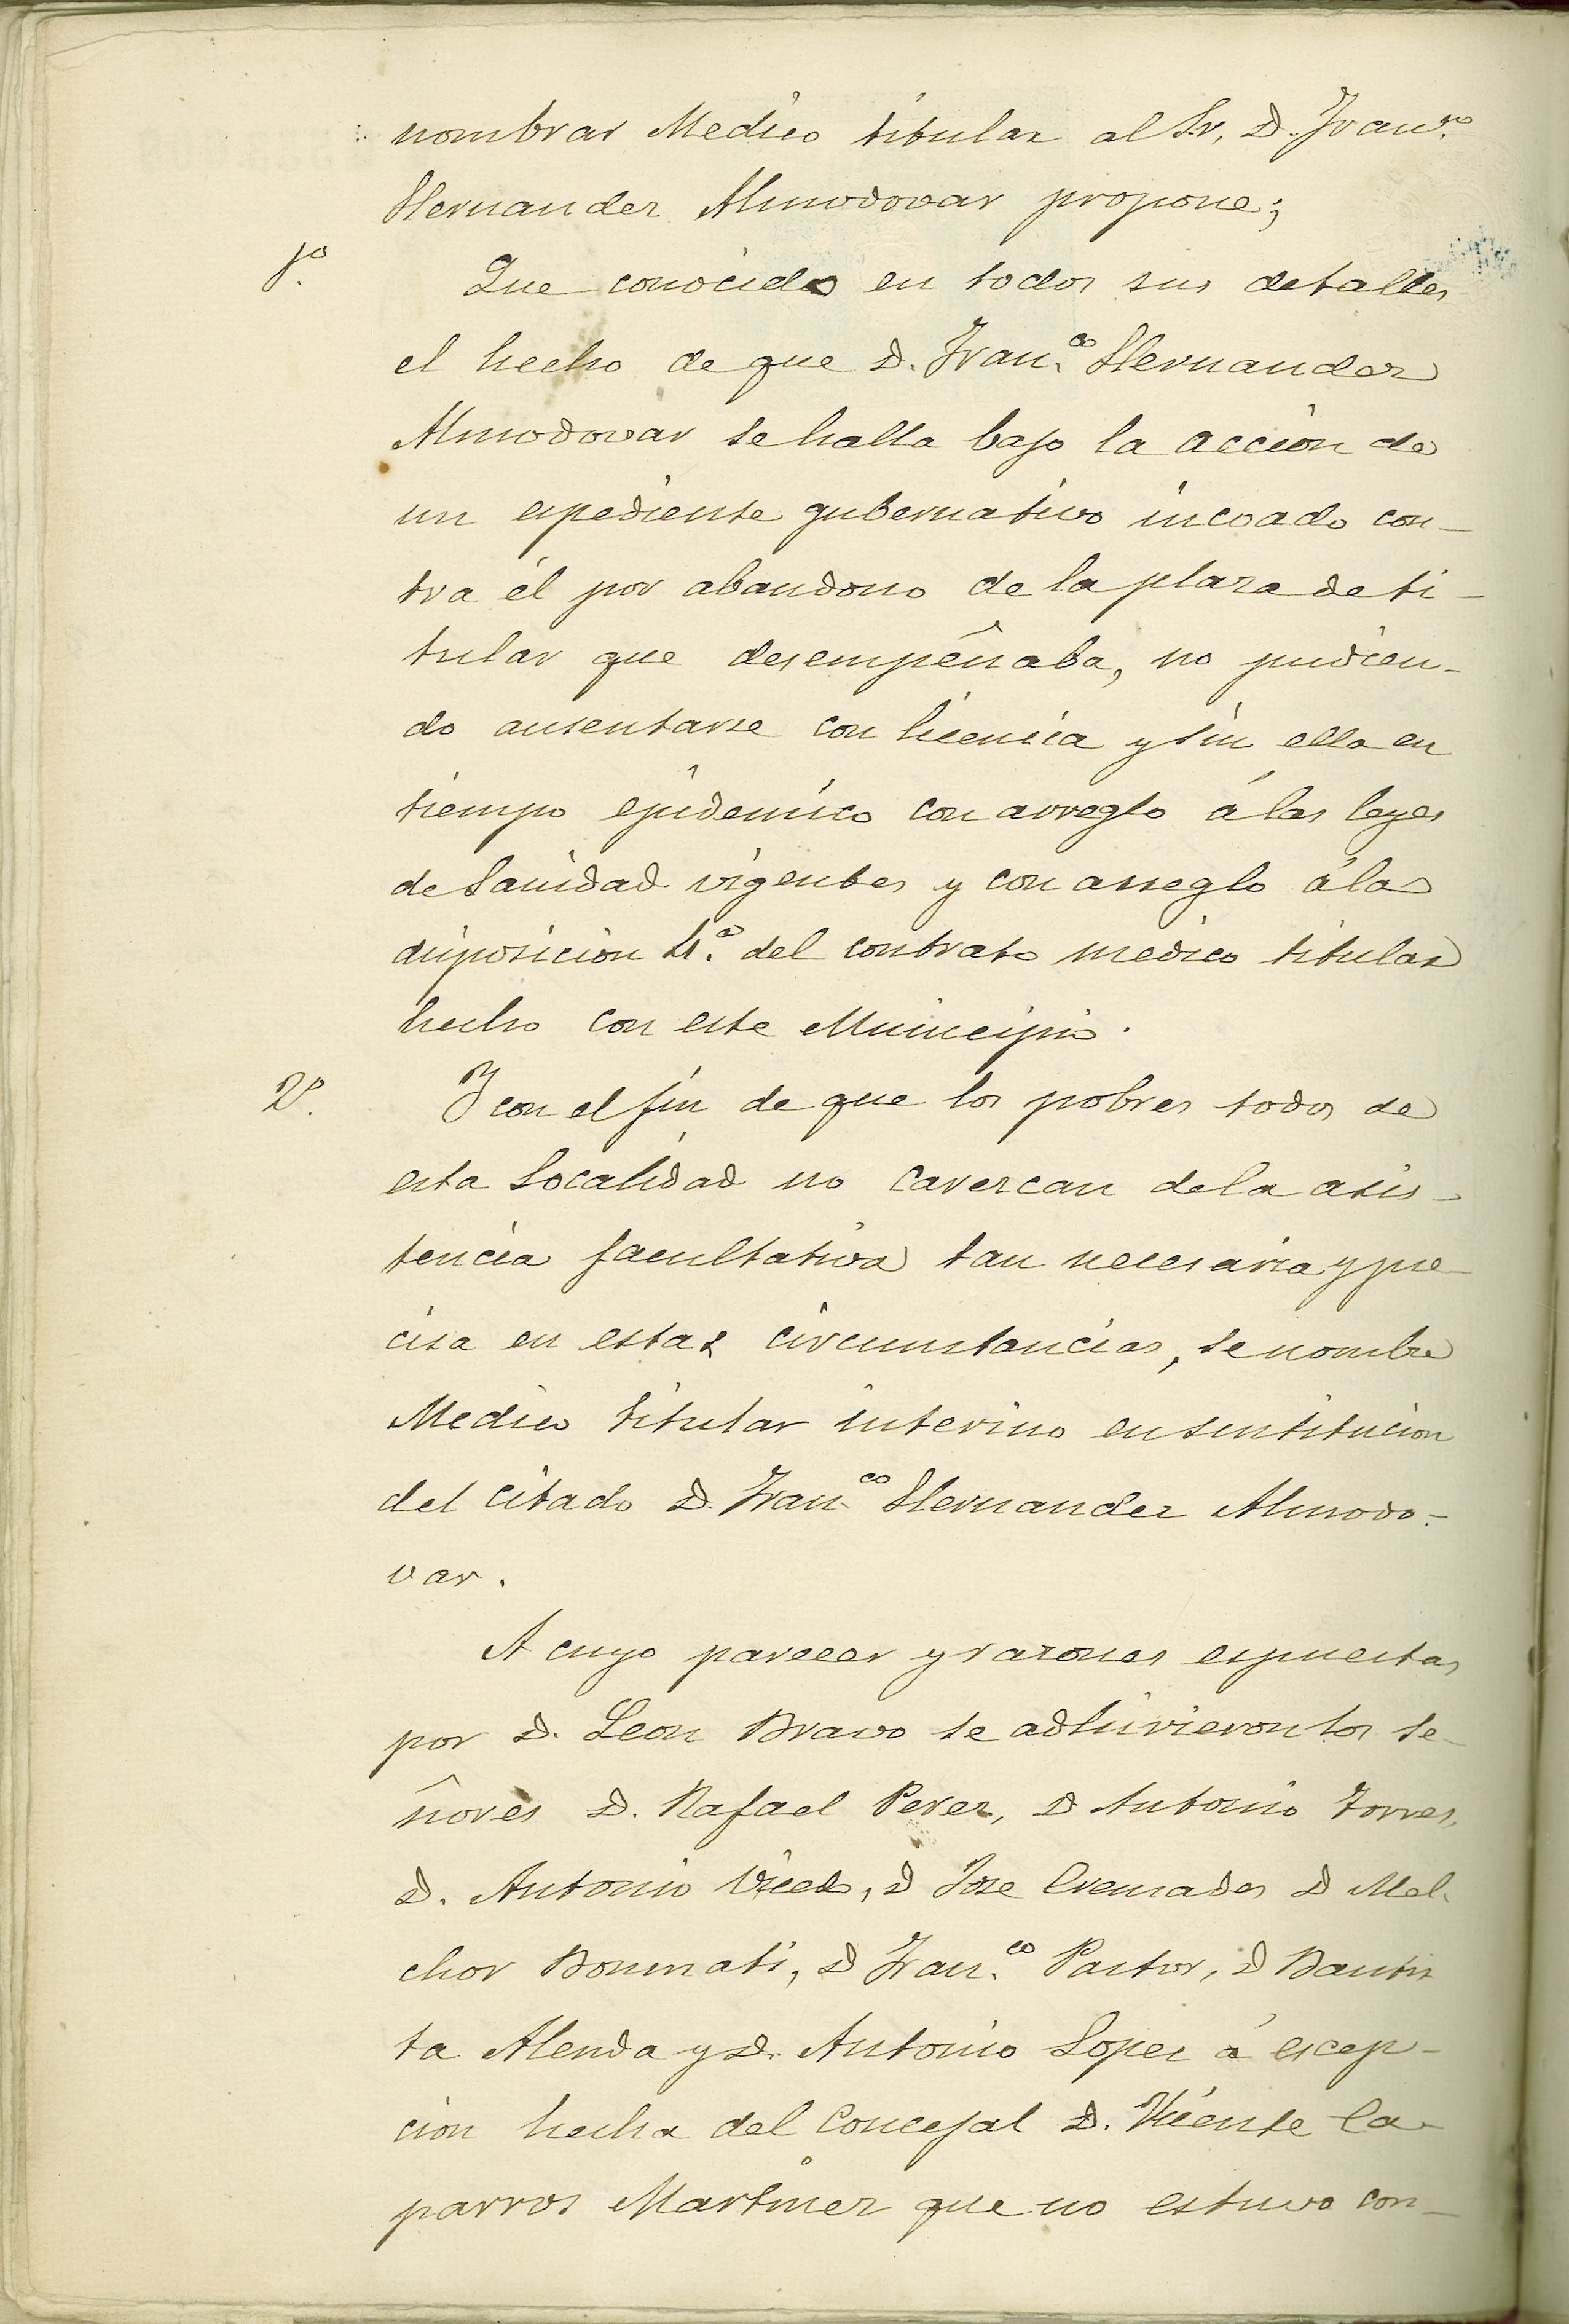 nombrar Medico titular al Sr, D. Fran.co
Hernandez Almodovar propone;
1º. Que conocido en todos sus detalles
el hecho de que D. Fran.co Hernandez
Almodovar se halla bajo la accion de
un espediente gubernativo incoado con-
tra él por abandono de la plaza de ti-
tular que desempeñaba, no pudien-
do ausentarse con licencia y sin ella en
tiempo epidemico con arreglo á las leyes
de Sanidad vigentes y con arreglo á la
disposicion 4.ª del contrato medico titular
hecho con este Municipio.
2º. Y con el fin de que los pobres todos de
esta Localidad no carezcan de la asis-
tencia facultativa tan necesaria y pre-
cisa en estas circunstancias, se nombre
Medico titular interino en sustitucion
del citado D. Fran.co Hernandez Almodo-
var.
A cuyo parecer y razones espuestas
por D. Leon Bravo se adhirieron los se-
ñores D. Rafael Perez, D Antonio Torres,
D. Antonio Vicedo, D Jose Cremades D Mel-
chor Bonmati, D Fran.co Pastor, D Bautis
ta Alenda y D. Antonio Lopez á escep-
cion hecha del Concejal D. Vicente Ca-
parros Martinez que no estuvo con-